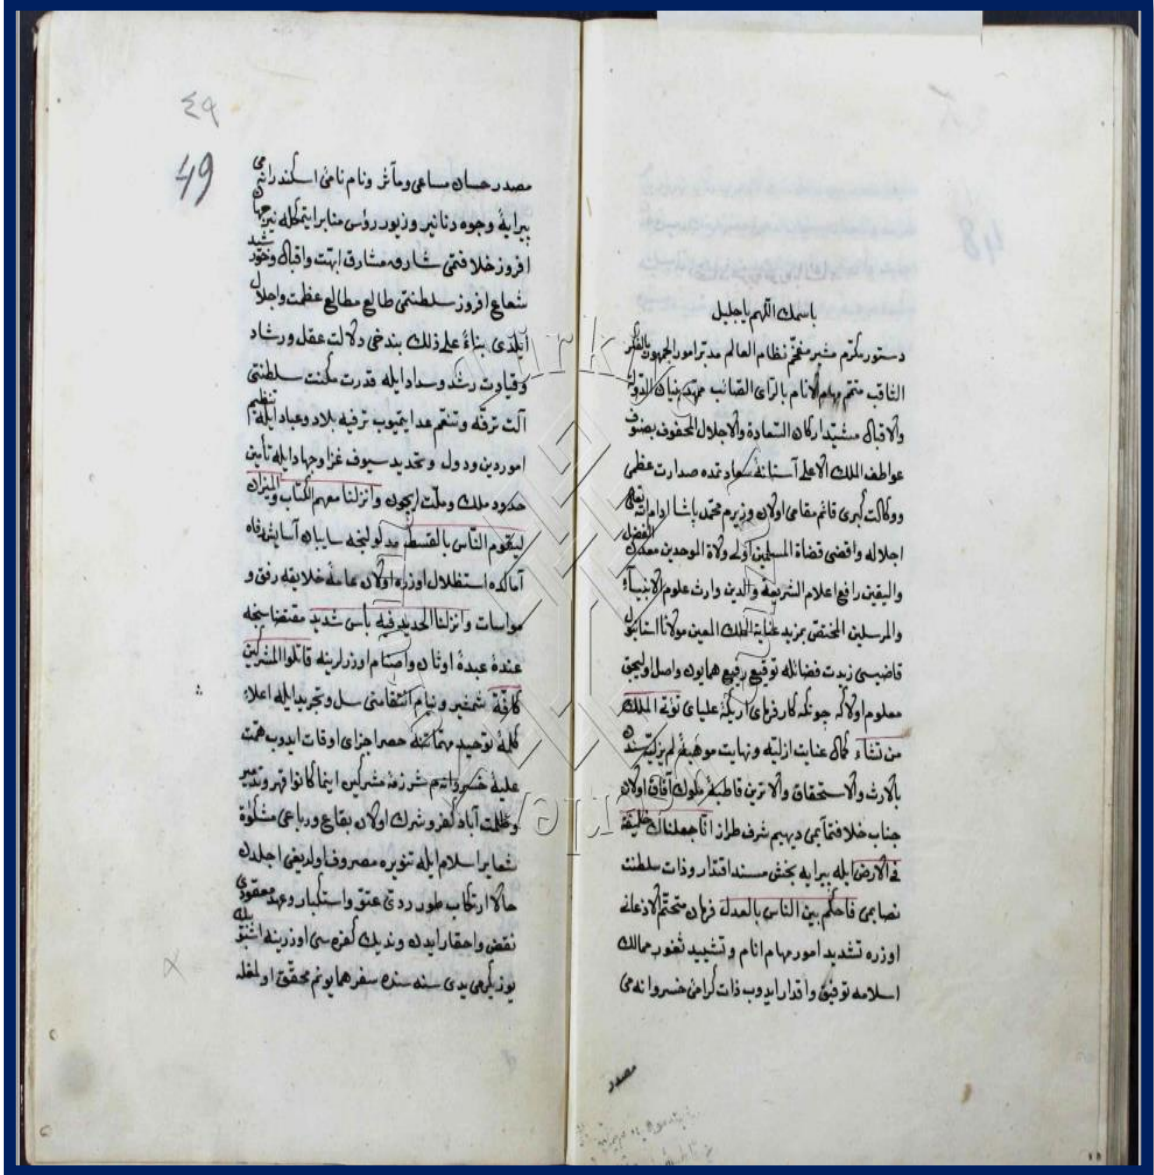 باسمك اللهم يا جليل
دستور مكرم مشير مفخم نظام العالم مدبر امور الجمهور بالفكر
الثاقب متمم مهام الانام بالرأى الصائب ممهد بنيان الدولة
والاقبال مشيد اركان السعادة والاجلال المحفوف بصنوف
عواطف الملك الاعلى آستانۀ سعادتمده صدارت عظمى
ووكالت كبرى قائم مقامى اولان وزيرم محمد پاشا ادام الله تعالى
اجلاله واقضى قضاة المسلمين اولى ولاة الموحدين معدن الفضل
واليقين رافع اعلام الشريعة والدين وارث علوم الانبياء
والمرسلين المختص بمزيد عناية الملك المعين مولانا استانبول
قاضيسى زيدت فضائله توقيع رفيع همايون واصل اوليجق
معلوم اولا كه چونكه كارفرماى اريكۀ علياى تؤتى الملك
من تشاء كمال عنايت ازليه ونهايت موهبۀ لم يزليه سندن
بالارث والاستحقاق والاترين قاطبۀ ملوك آفاق اولان
جناب خلافتمآبمى ديهيم شرف طراز انا جعلناك خليفة
فى الارض ايله پيرايه بخش مسند اقتدار وذات سلطنت
نصابمى فاحكم بين الناس بالعدل فرمان متحتم الاذعانى
اوزره تشديد امور مهام انام وتشييد ثغور ممالك
اسلامه توفيق واقدار ايدوب ذات كرامئ خسروانه مى
مصدر
٤٩
49
مصدر حسان مساعى ومآثر ونام نامئ اسكندرانه مى
پيرايۀ وجوه دنانير وزيور رؤس منابر ايتمكله نير جهان
افروز خلافتمى شارق مشارق ابهت واقبال وخورشيد
شعاع افروز سلطنتمى طالع مطالع عظمت واجلال
ايلدى بناء على ذلك بندخى دلالت عقل ورشاد
وقيادت رشد وسداد ايله قدرت مكنت سلطنتى
آلت ترفه وتنعم عد ايتميوب ترفيه بلاد وعباد ايله تنظيم
امور دين ودول وتحديد سيوف غزا وجهاد ايله تأمين
حدود ملك وملت ايچون وانزلنا معهم الكتاب والميزان
ليقوم الناس بالقسط مدلولنجه سايبان آسايش
آمالده استظلال اوزره اولان عامۀ خلايقه رفق و
مواسات وانزلنا الحديد فيه بأس شديد مقتضاسنجه
عندۀ عبدۀ اوثان واصنام اوزرلرينه قاتلوا المشركين
كافة شمشير ونيام انتقامى سل وتجريد ايله اعلاء
كلمۀ توحيد مهماتنه حصر اجزاى اوقات ايدوب همت
عليۀ خسروانه م شرذمۀ مشركين اينما كانوا قهر وتدمير
وظلمت آباد كفر وشرك اولان بقاع ورباعى مشكوة
شعاير اسلام ايله تنويره مصروف اولديغى اجلدن
حالا ارتكاب طور ردئ عتو واستكبار وعهد معقودى
نقض واحقار ايدن ونديك كفره سى اوزرينه اشبو بيك
يوز يكرمى يدى سنه سنده سفر همايونم محقق اولمغله